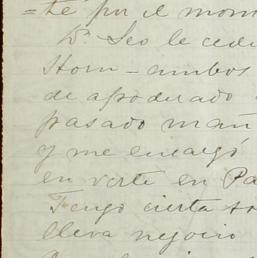 =te por el mom
Dn. Leo le cedi
Horn - ambos
de apoderado
pasado mañ
y me encargó
en verte en Pa
Tengo cierta so
lleva negocio